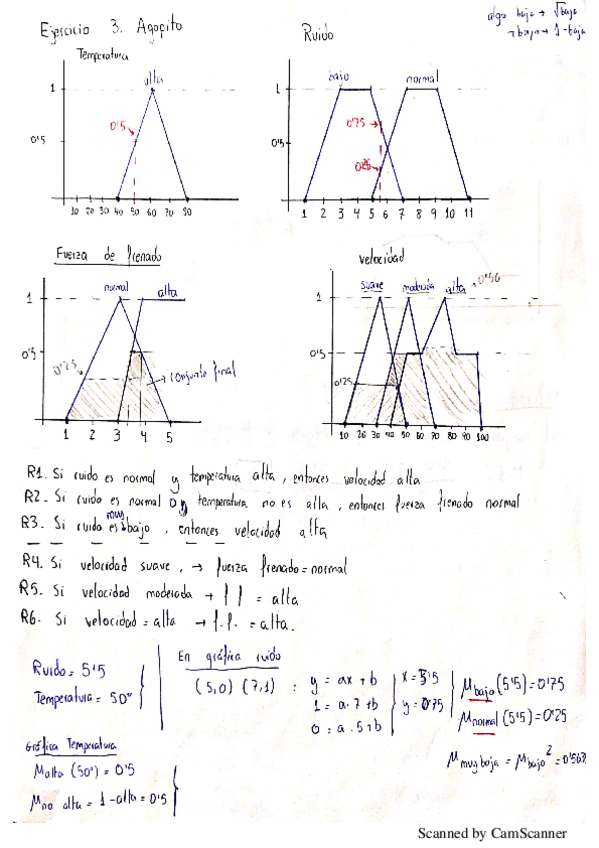 Ejercicio 3. Agapito
algo bajo → √bajo
¬ bajo → 1-bajo
Temperatura
alta
1
0'5
0'5
10 20 30 40 50 60 70 80
Ruido
bajo
normal
1
0'75
0'5
0'25
1 2 3 4 5 6 7 8 9 10 11
Fuerza de frenado
normal
alta
1
0'5
0'25
conjunto final
1 2 3 4 5
velocidad
suave
moderada
alta
0'56
1
0'5
0'25
10 20 30 40 50 60 70 80 90 100
R1. Si ruido es normal y temperatura alta, entonces velocidad alta
R2. Si ruido es normal o temperatura no es alta, entonces fuerza frenado normal
R3. Si ruido es muy bajo, entonces velocidad alta
R4. Si velocidad suave, → fuerza frenado = normal
R5. Si velocidad moderada → f f = alta
R6. Si velocidad = alta → f.f. = alta.
Ruido = 5'5
Temperatura = 50°
En gráfica ruido
(5,0) (7,1) :
y = ax + b
1 = a·7 + b
0 = a·5 + b
x = 5'5
y = 0'75
μbajo (5'5) = 0'75
μnormal (5'5) = 0'25
μmuy baja = μbajo² = 0'563
Gráfica Temperatura
μalta (50°) = 0'5
μno alta = 1 - alta = 0'5
Scanned by CamScanner